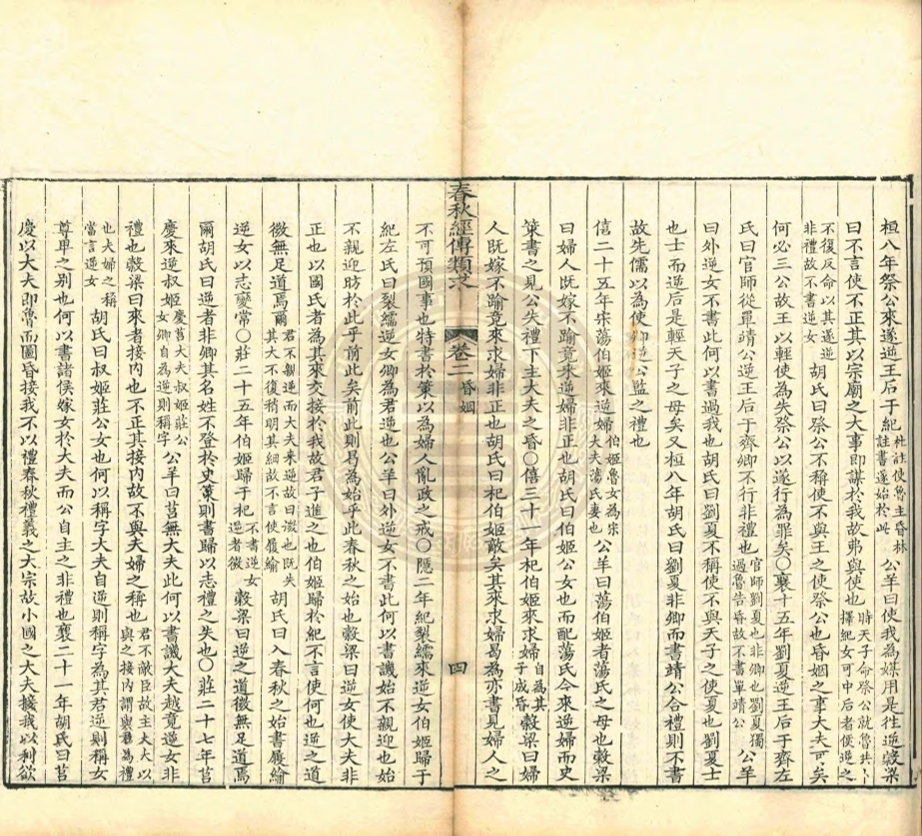 桓八年祭公來遂逆王后于紀杜註使魯主昏林註書遂始於此公羊曰使我為媒用是往逆穀梁
曰不言使不正其以宗廟之大事即謀於我故弗與使也時天子命祭公就魯共卜擇紀女可中后者便逆之
不復反命以其遂逆非禮故不書逆女胡氏曰祭公不稱使不與王之使祭公也昏姻之事大夫可矣
何必三公故王以輕使為失祭公以遂行為罪矣○襄十五年劉夏逆王后于齊左
氏曰官師從單靖公逆王后于齊卿不行非禮也官師劉夏也非卿也劉夏獨過魯告昏故不書單靖公公羊
曰外逆女不書此何以書過我也胡氏曰劉夏不稱使不與天子之使夏也劉夏士
也士而逆后是輕天子之母矣又桓八年胡氏曰劉夏非卿而書靖公合禮則不書
故先儒以為使卿逆公監之禮也
僖二十五年宋蕩伯姬來逆婦伯姬魯女為宋大夫蕩氏妻也公羊曰蕩伯姬者蕩氏之母也穀梁
曰婦人既嫁不踰竟來逆婦非正也胡氏曰伯姬公女也而配蕩氏今來逆婦而史
策書之見公失禮下主大夫之昏○僖三十一年杞伯姬來求婦自為其子成昏穀梁曰婦
人既嫁不踰竟來求婦非正也胡氏曰杞伯姬敵矣其來求婦曷為亦書見婦人之
春秋經傳類求 卷二 昏姻 四
不可預國事也特書於策以為婦人亂政之戒○隱二年紀裂繻來逆女伯姬歸于
紀左氏曰裂繻逆女卿為君逆也公羊曰外逆女不書此何以書譏始不親迎也始
不親迎昉於此乎前此矣前此則曷為始乎此春秋之始也穀梁曰逆女使大夫非
正也以國氏者為其來交接於我故君子進之也伯姬歸於紀不言使何也逆之道
微無足道焉爾君不親逆而大夫來逆故曰微也既失其大不復稍明其細故不言使履緰胡氏曰入春秋之始書履緰
逆女以志變常○莊二十五年伯姬歸于杞不書逆女逆者微穀梁曰逆之道微無足道焉
爾胡氏曰逆者非卿其名姓不登於史策則書歸以志禮之失也○莊二十七年莒
慶來逆叔姬慶莒大夫叔姬莊公女卿自為逆則稱字公羊曰莒無大夫此何以書譏大夫越竟逆女非
禮也穀梁曰來者接內也不正其接內故不與夫婦之稱也君不敵臣故主大夫以與之接內謂與君為禮
也夫婦之稱當言逆女胡氏曰叔姬莊公女也何以稱字大夫自逆則稱字為其君逆則稱女
尊卑之別也何以書諸侯嫁女於大夫而公自主之非禮也襄二十一年胡氏曰莒
慶以大夫即魯而圖昏接我不以禮春秋禮義之大宗故小國之大夫接我以利欲